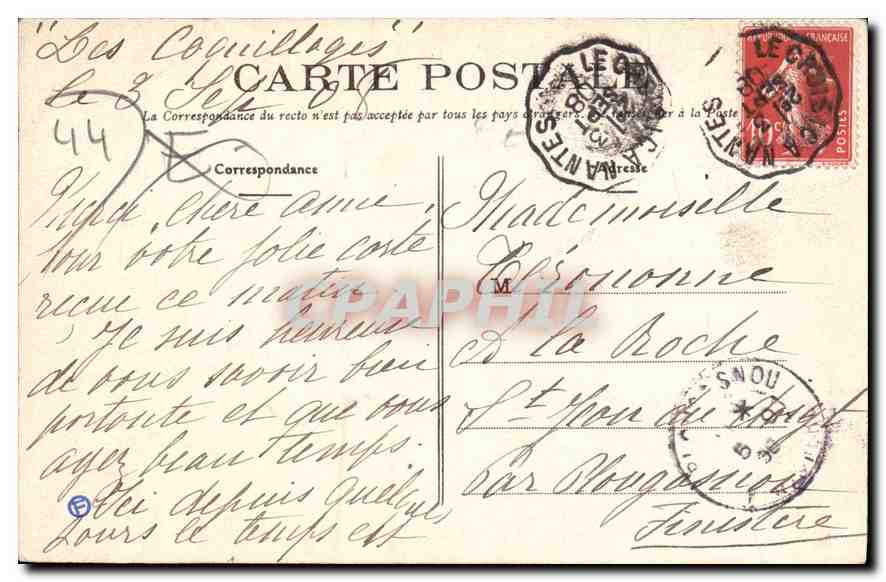 "Les Coquillages"
le 3 Sept 08
CARTE POSTALE
La Correspondance du recto n'est pas acceptée par tous les pays étrangers. Se renseigner à la Poste
44
E
Correspondance
Adresse
Merci chère amie,
pour votre jolie carte
reçue ce matin
Je suis heureuse
de vous savoir bien
portante et que vous
ayez beau temps.
Ici depuis quelques
jours le temps est
Mademoiselle
M
à la Roche
St Jean du Doigt
Par Plougasnou
Finistère
LE CROISIC A NANTES
LE CROISIC A NANTES
REPUBLIQUE FRANÇAISE
10
POSTES
PLOUGASNOU
5
F
CPAPHIL